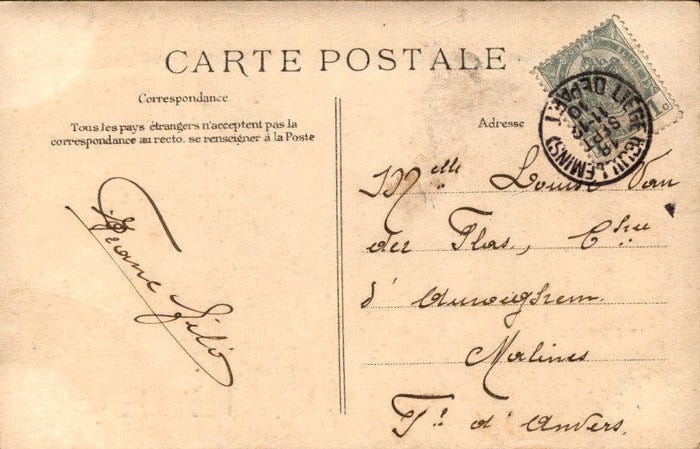 CARTE POSTALE
Correspondance
Tous les pays étrangers n'acceptent pas la
correspondance au recto. se renseigner à la Poste
Adresse
LIEGE (GUILLEMINS)
DEPART
10
11
SEPT
Franc
Melle Louise Van
der Plas, Chee
d'
Malines
d' Anvers.